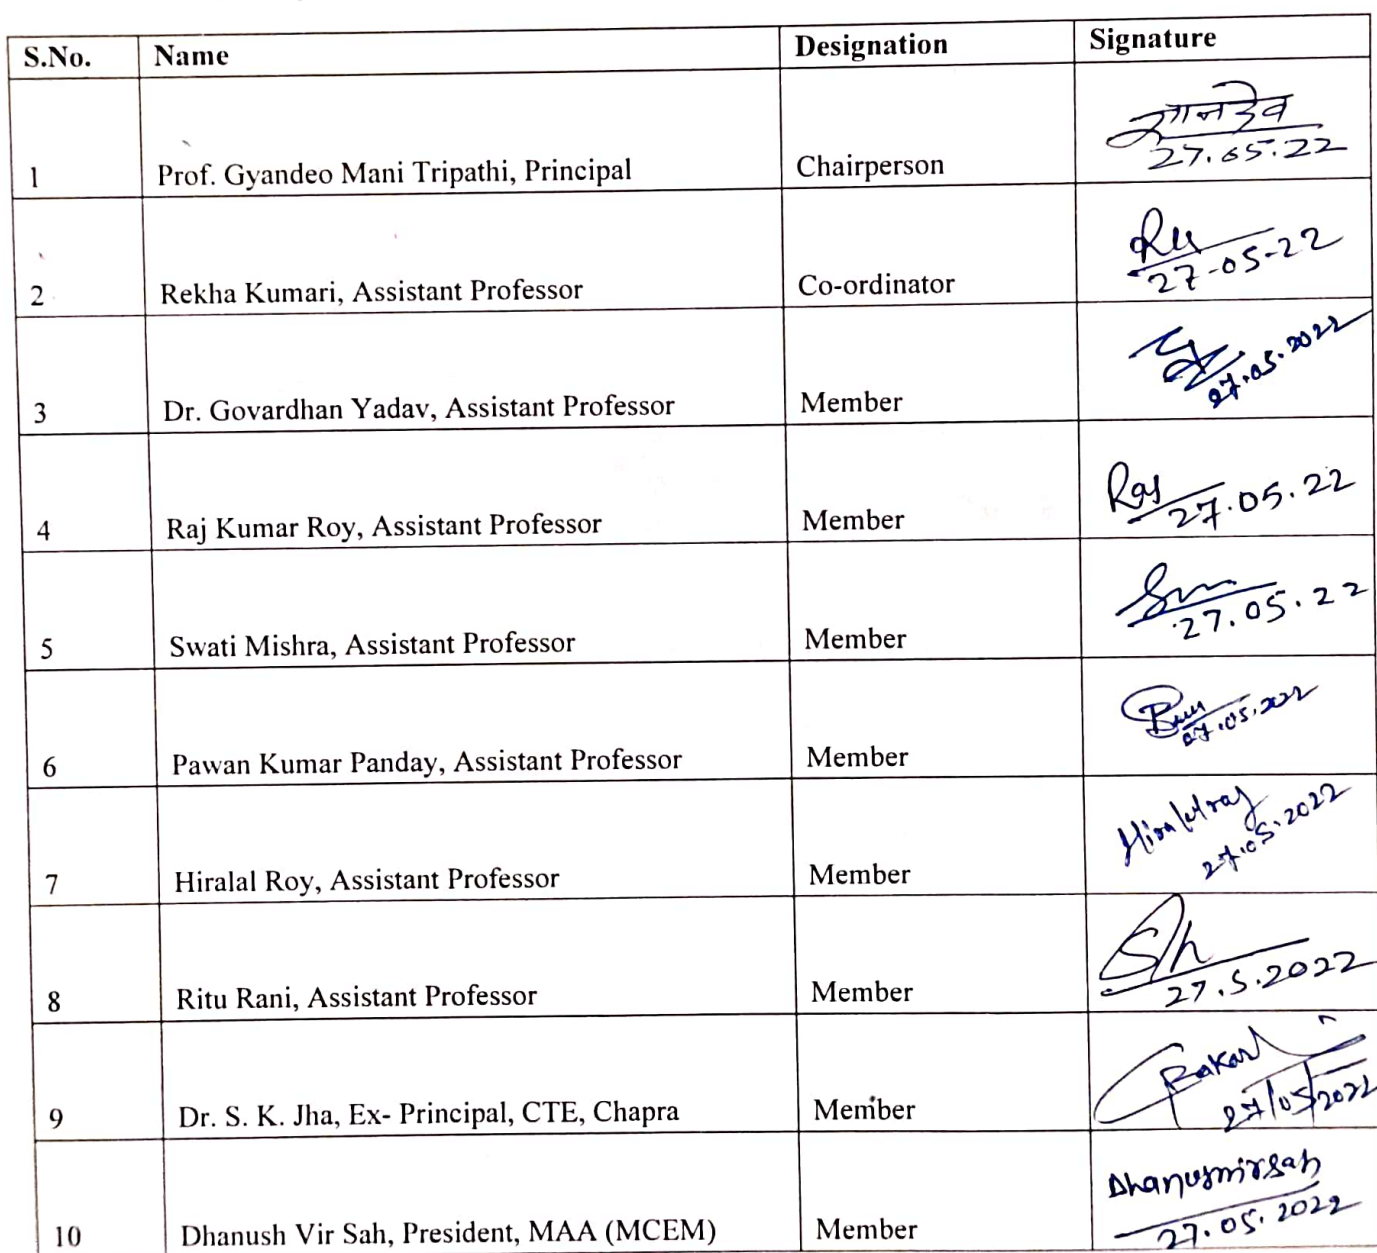 S.No. Name Designation Signature
ज्ञानदेव
27.05.22
1 Prof. Gyandeo Mani Tripathi, Principal Chairperson
27-05-22
2 Rekha Kumari, Assistant Professor Co-ordinator
27.05.2022
3 Dr. Govardhan Yadav, Assistant Professor Member
Raj
27.05.22
4 Raj Kumar Roy, Assistant Professor Member
27.05.22
5 Swati Mishra, Assistant Professor Member
27.05.2022
6 Pawan Kumar Panday, Assistant Professor Member
27.05.2022
7 Hiralal Roy, Assistant Professor Member
27.5.2022
8 Ritu Rani, Assistant Professor Member
27/05/2022
9 Dr. S. K. Jha, Ex- Principal, CTE, Chapra Member
27.05.2022
10 Dhanush Vir Sah, President, MAA (MCEM) Member